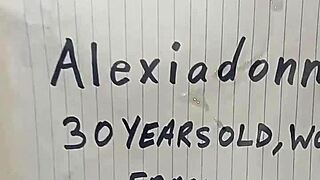 Alexiadonn
30 YEARS OLD, WO